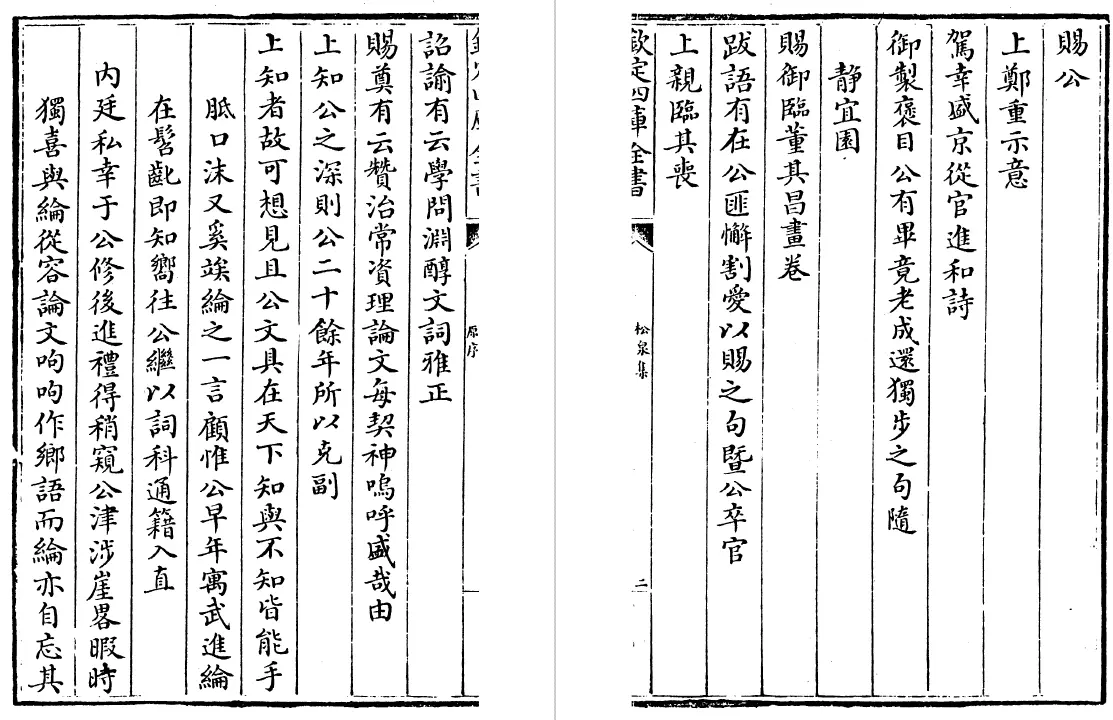 賜公
上鄭重示意
駕幸盛京從官進和詩
御製褒目公有畢竟老成還獨步之句隨
靜宜園
賜御臨董其昌畫卷
跋語有在公匪懈割愛以賜之句暨公卒官
上親臨其喪
欽定四庫全書
松泉集
二
原序
詔諭有云學問淵醇文詞雅正
賜奠有云贊治常資理論文每契神嗚呼盛哉由
上知公之深則公二十餘年所以克副
上知者故可想見且公文具在天下知與不知皆能手
胝口沫又奚竢綸之一言顧惟公早年寓武進綸
在髫齔即知嚮往公繼以詞科通籍入直
内廷私幸于公修後進禮得稍窺公津涉崖畧暇時
獨喜與綸從容論文呴呴作鄉語而綸亦自忘其